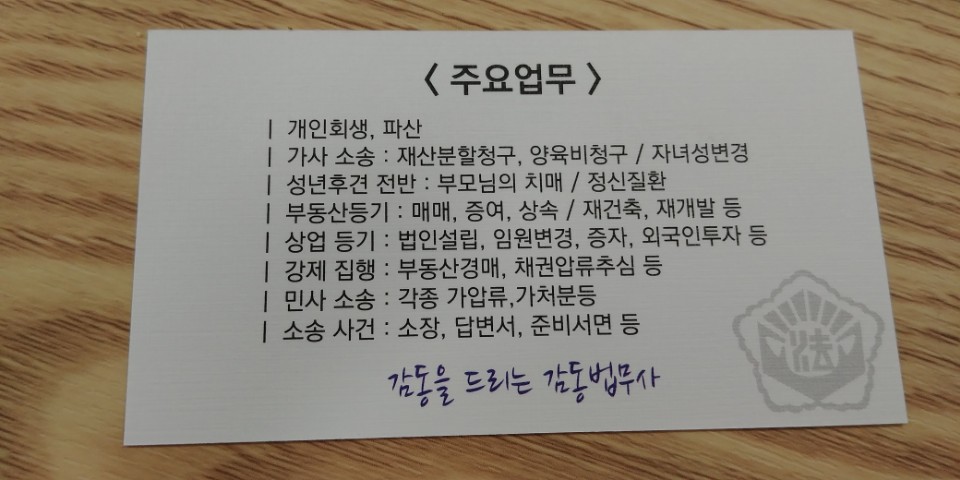 < 주요업무 >
| 개인회생, 파산
| 가사 소송 : 재산분할청구, 양육비청구 / 자녀성변경
| 성년후견 전반 : 부모님의 치매 / 정신질환
| 부동산등기 : 매매, 증여, 상속 / 재건축, 재개발 등
| 상업 등기 : 법인설립, 임원변경, 증자, 외국인투자 등
| 강제 집행 : 부동산경매, 채권압류추심 등
| 민사 소송 : 각종 가압류,가처분등
| 소송 사건 : 소장, 답변서, 준비서면 등
감동을 드리는 감동법무사
法